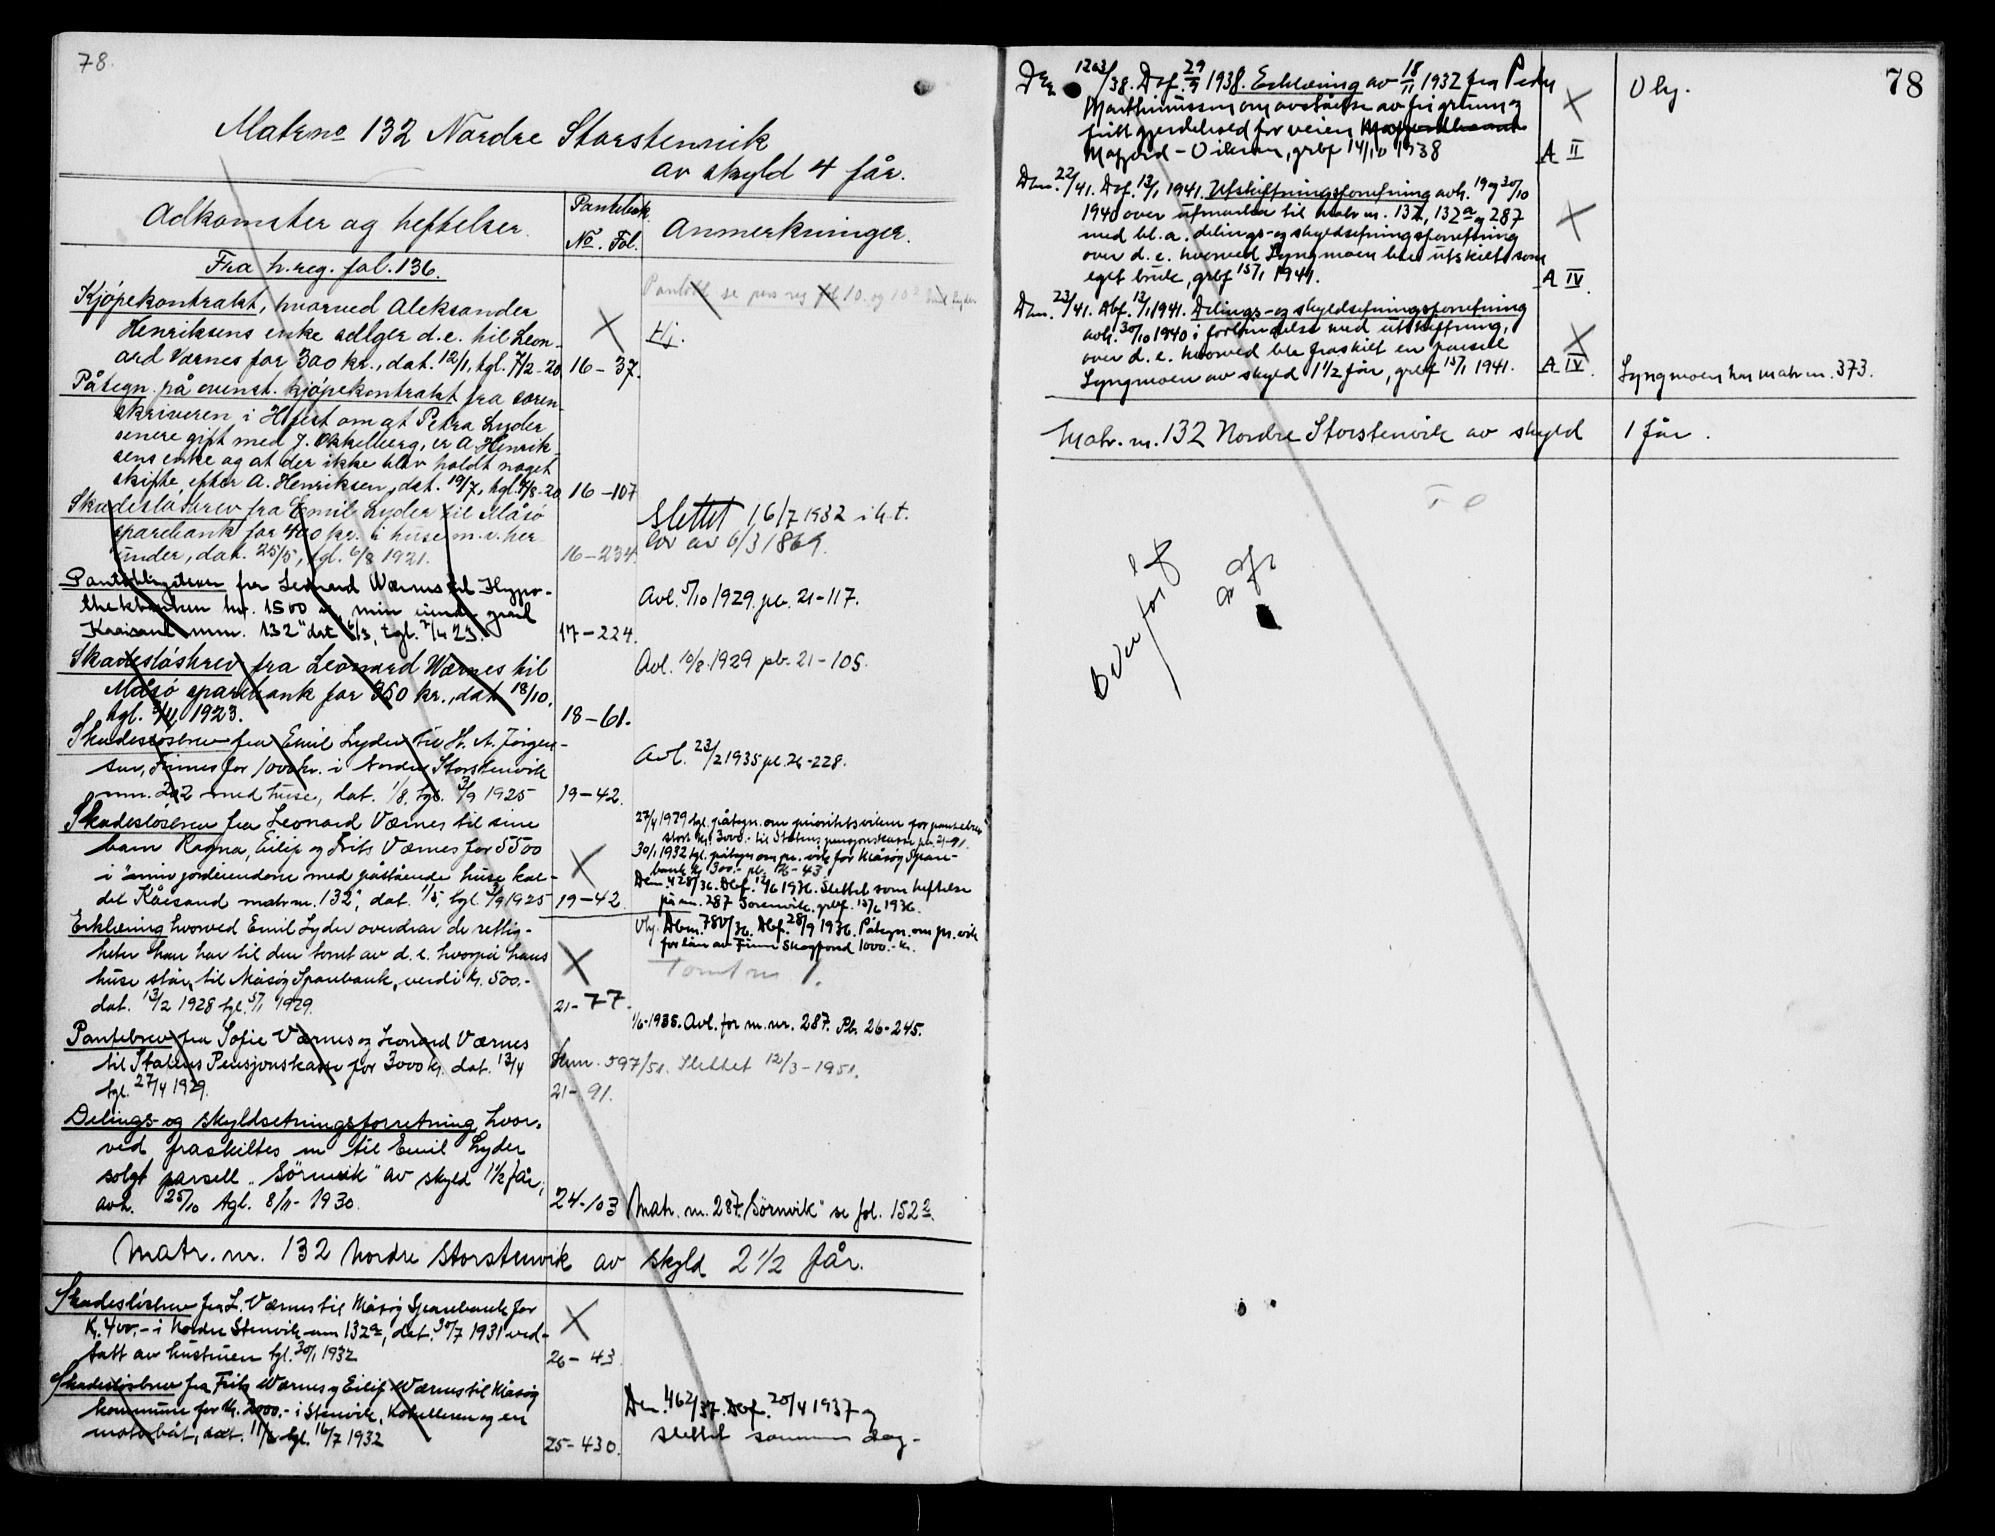 78.
Matrno 132 Nordre Storstenvik
av skyld 4 får.
Adkomster og heftelser.
Pantebok.
No. Fol.
Anmerkninger.
Fra h.reg. fol. 136.
Kjøpekontrakt, hvorved Aleksander
Henriksens enke selger d.e. til Leon-
ard Værnes for 300 kr., dat. 12/1, tgl. 7/2-20
16-37.
Påtegn. på ovenst. kjøpekontrakt fra soren-
skriveren i H.fest om at Petra Lyder
senere gift med J. Okkelberg, er A. Henrik-
sens enke og at der ikke blev holdt noget
skifte efter A. Henriksen, dat. 19/7, tgl. 4/8-20
16-107
Skadesløsbrev fra Emil Lyder til Måsø
sparebank for 400 kr. i huse m.v. her
under, dat. 25/5, tgl. 6/8 1921.
16-234.
Slettet 16/7 1932 i h.t.
lov av 6/3 1869.
Pantobligasjon fra Leonard Wærnes til Hypo-
thekbanken kr. 1500 min
mnr. 132" dat 6/3, tgl. 23.
17-224.
Avl. 5/10 1929. pb. 21-117.
Skadesløsbrev fra Leonard Wærnes til
Måsø sparebank for 350 kr., dat. 18/10,
tgl. 3/11 1923.
18-61.
Avl. 10/8 1929 pb. 21-105.
Skadesløsbrev fra Emil Lyder til H. A. Jørgen-
sen, Finnes for 1000 kr. i Nordre Storstenvik
mnr. 202 med huse, dat. 1/8, tgl. 3/9 1925
19-42.
Avl. 23/2 1935 pb. 26-228.
Skadesløsbrev fra Leonard Værnes til sine
barn Ragna, Eilif og Frits Værnes for 5500
i "min jordeiendom med påstående huse kal-
det Kåisand matr nr. 132", dat. 1/5, tgl. 3/9 1925
19-42.
27/4 1929 tgl. påtegn. om prioritetsvikem for pantebrev
stort kr. 3000.- til Statens pensjonskasse pb. 21-91.
30/1 1932 tgl. påtegn om pr. vik for Måsøy Spare-
bank kr 300.- pb. 26-43
Dnr. 428/36. Dbf. 12/6 1936. Slettet som heftelse
på mnr. 287 Sørnvik, grbf. 15/6 1936.
Obj. Dbnr. 780/36. Dbf. 28/9 1936. Påtegn. om pr. vik
for lån av Finnm Skogfond 1000.- kr.
Erklæring hvorved Emil Lyder overdrar de rettig-
heter han har til den tomt av d.e. hvorpå hans
huse står, til Måsøy Sparebank, verdi kr. 500.-
dat. 13/2 1928 tgl. 5/1 1929.
21-77.
Tomt nr 1.
Pantebrev fra Sofie Værnes og Leonard Værnes
til Statens Pensjonskasse for 3000 kr. dat. 13/4
tgl. 27/4 1929.
21-91.
1/6-1935. Avl. for m. nr. 287. Pb. 26-245.
Dnr. 597/51. Slettet 12/3-1951.
Delings- og skyldsetningsforretning hvor-
ved fraskiltes en til Emil Lyder
solgt parsell "Sørnvik" av skyld 1 1/2 får,
avh. 25/10 tgl. 8/11-1930.
24-103
Matr. nr. 287 "Sørnvik" se fol. 152 a.
Matr. nr. 132 Nordre Storstenvik av skyld 2 1/2 får.
Skadesløsbrev fra L. Værnes til Måsøy Sparebank for
kr. 400.- i Nordre Stenvik mnr 132a, dat. 30/7 1931 ved-
tatt av hustruen tgl. 30/1 1932
26-43.
Skadesløsbrev fra Frits Wærnes og Eilif Wærnes til Måsøy
kommune for kr. 2000.- i Stenvik, og en
motorbåt, dat. 11/6 tgl. 16/7 1932
25-430.
Dnr. 462/37. Dbf. 20/4 1937 og
slettet sammen dag.
78
Dnr 1263/38. Dbf. 29/9 1938. Erklæring av 18/11 1932 fra Peder
Marthinussen om avståelse av fri grunn og
fritt gjerdehold for veien
Mafjord - Viknan, grbf 14/10 1938
A II
Obj.
Dnr. 22/41. Dbf. 13/1 1941. Utskiftningsforretning avh. 19 og 30/10
1940 over utmarken til matr nr. 132, 132a og 287
med bl.a. delings- og skyldsetningsforretning
over d.e. hvorved Lyngmoen ble utskilt som
eget bruk, grbf 15/1 1941.
A IV
Dnr. 23/41. Dbf. 13/1 1941. Delings- og skyldsetningsforretning
avh. 30/10 1940 i forbindelse med utskiftning,
over d.e. hvorved ble fraskilt en parsell
Lyngmoen av skyld 1 1/2 får, grbf 15/1 1941.
A IV.
Lyngmoen har matr nr. 373.
Matr. nr. 132 Nordre Storstenvik av skyld
1 får.
Overført